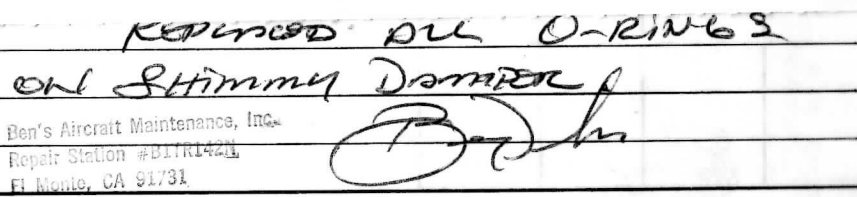 REPLACED ALL O-RINGS
ON SHIMMY DAMPER
Ben's Aircraft Maintenance, Inc.
Repair Station #B1TR142N
El Monte, CA 91731